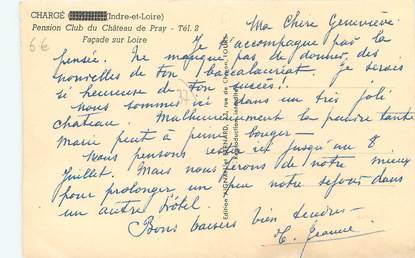 CHARGÉ (Indre-et-Loire)
Pension Club du Château de Pray - Tél. 2
Façade sur Loire
6€
Ma Chère Geneviève.
Je t'accompagne par la
pensée. Ne manque pas de donner des
nouvelles de ton baccalauréat. Je serais
si heureuse de ton succès!!
Nous sommes ici dans un très joli
chateau. Malheureusement la pauvre tante
Marie peut à peine bouger -
Nous pensons rester ici jusqu'au 8
Juillet. Mais nous ferons de notre mieux
pour prolonger un peu notre sejour dans
un autre hôtel.
Bons baisers bien tendres -
Jeanne.